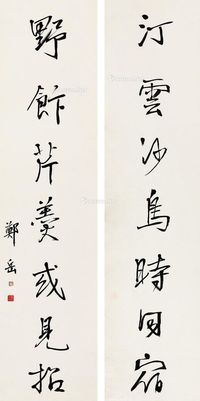 汀雲沙鳥時同宿
野飰芹羹或見招
鄭岳